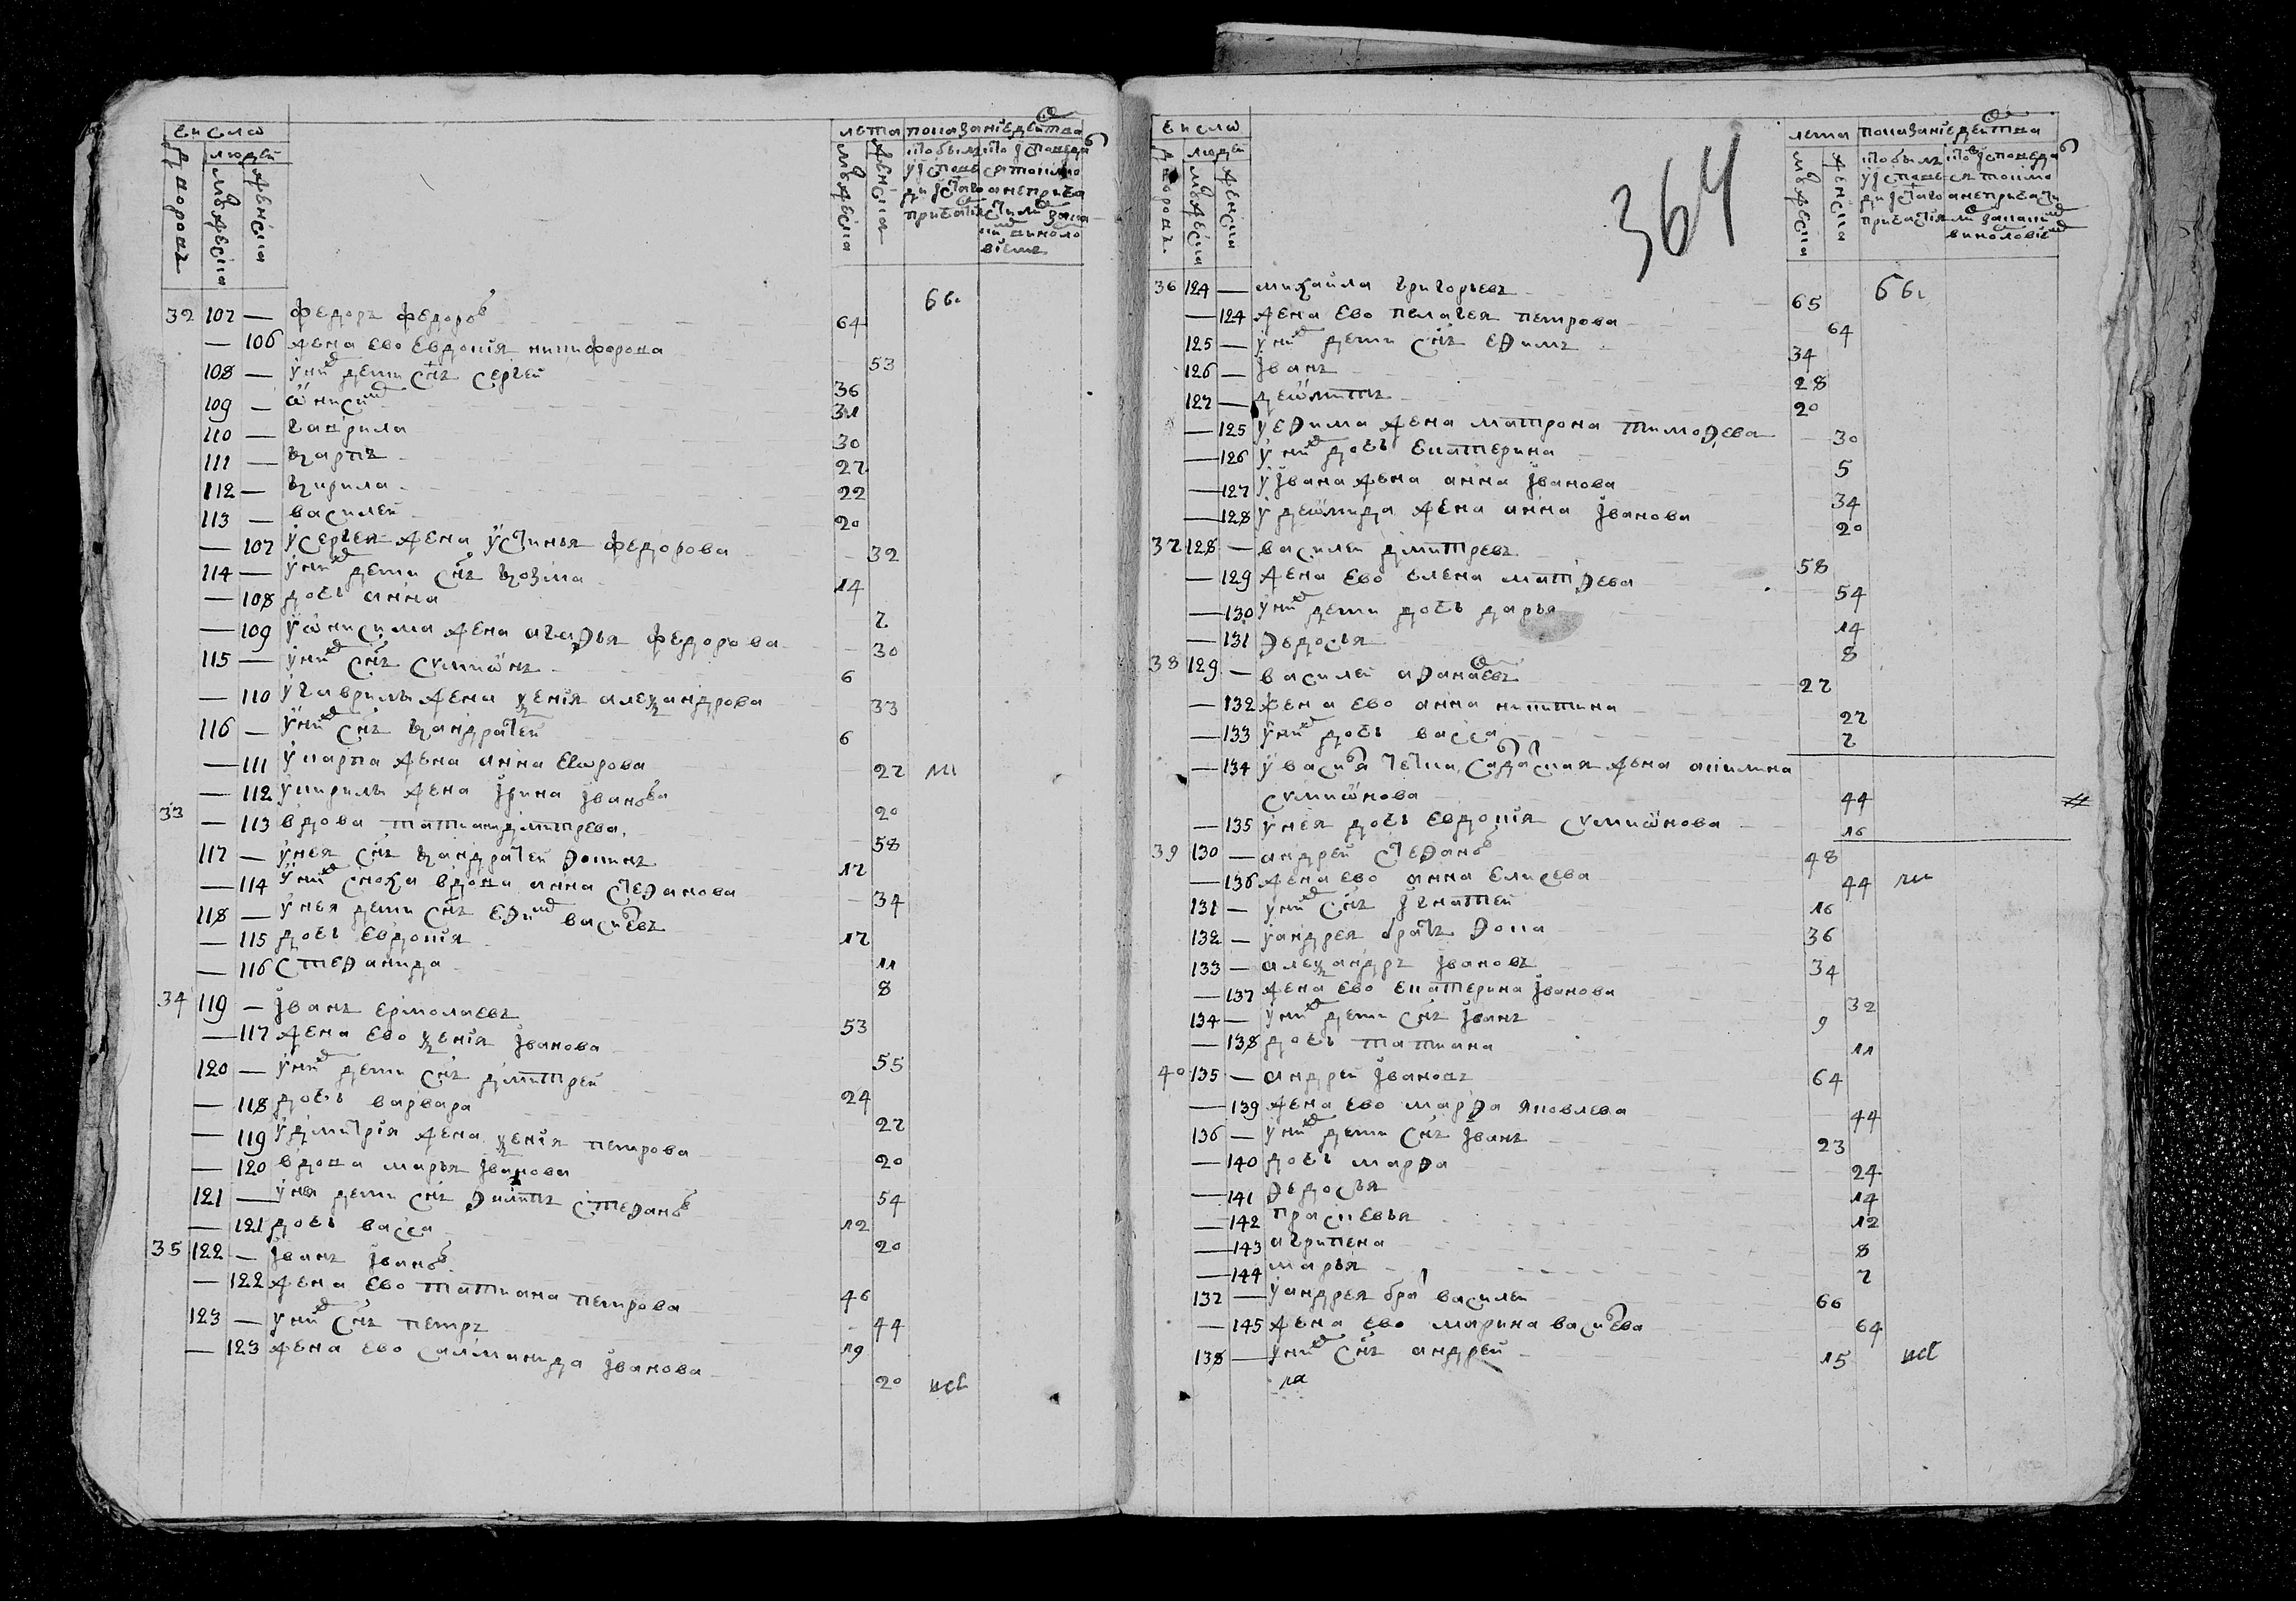 число
людей
дворовъ
мужеска
женска
лета
мужеска
женска
показание действа
бы.
32 107 — федоръ федоровъ 64
— 106 жена ево евдокія никифорова 53
108 — у нихъ дети снъ сергей 36
109 — ѿнисимъ 31
110 — гаврила 30
111 — карпъ 27
112 — кирила 22
113 — василей 20
— 107 у сергея жена устинья федорова 32
114 — у нихъ дети снъ козма 14
— 108 дочь анна 7
— 109 у ѿнисима жена агафья федорова 30
115 — у нихъ снъ сумиѿнъ 6
— 110 у гаврилы жена ѯенія алеѯандрова 33
116 — у нихъ снъ кандратей 6
— 111 у карпа жена анна егорова 27
— 112 у кирилы жена ірина іванова 20
33 — 113 вдова татиана дмитрева 58
117 — у нея снъ кандратей фокинъ 17
— 114 у нихъ сноха вдова анна стефанова 34
118 — у нея дети снъ ефимъ васильевъ 17
— 115 дочь евдокія 11
— 116 стефанида 8
34 119 — іванъ ермолаевъ 53
— 117 жена ево ѯенія іванова 55
120 — у нихъ дети снъ дмитрей 24
— 118 дочь варвара 27
— 119 у дмитрія жена ѯенія петрова 20
— 120 вдова марья іванова 54
121 — у нея дети снъ филипъ стефановъ 12
— 121 дочь васса 20
35 122 — іванъ івановъ 46
— 122 жена ево татиана петрова 44
123 — у нихъ снъ петръ 19
— 123 жена ево саламанида іванова 20
число
людей
дворовъ
мужеска
женска
364
лета
мужеска
женска
показание действа
бы.
36 124 — михаила григорьевъ 65
— 124 жена ево пелагея петрова 64
125 — у нихъ дети снъ ефимъ 34
126 — іванъ 28
127 — деѿмитъ 20
— 125 у ефима жена матрона тимофева 30
— 126 у нихъ дочь екатерина 5
— 127 у івана жена анна іванова 34
— 128 у деѿмида жена анна іванова 20
37 128 — василей дмитревъ 58
— 129 жена ево елена матфева 54
— 130 у нихъ дети дочь дарья 14
— 131 федосья 8
38 129 — василей афанасевъ 27
— 132 жена ево анна никитина 27
— 133 у нихъ дочь васса 7
— 134 у василья тетка салдатская жена акилина
сумиѿнова 44
— 135 у нея дочь евдокія сумиѿнова 16
39 130 — андрей стефановъ 48
— 136 жена ево анна елисева 44
131 — у нихъ снъ ігнатей 16
132 — у андрея братъ фока 36
133 — алеѯандръ івановъ 34
— 137 жена ево екатерина іванова 32
134 — у нихъ дети снъ іванъ 9
— 138 дочь татиана 11
40 135 — андрей івановъ 64
— 139 жена ево марфа яковлева 44
136 — у нихъ дети снъ іванъ 23
— 140 дочь марфа 24
— 141 федосья 14
— 142 праскевья 12
— 143 агрипена 8
— 144 марья 7
137 — у андрея братъ василей 66
— 145 жена ево марина васильева 64
138 — у нихъ снъ андрей 15